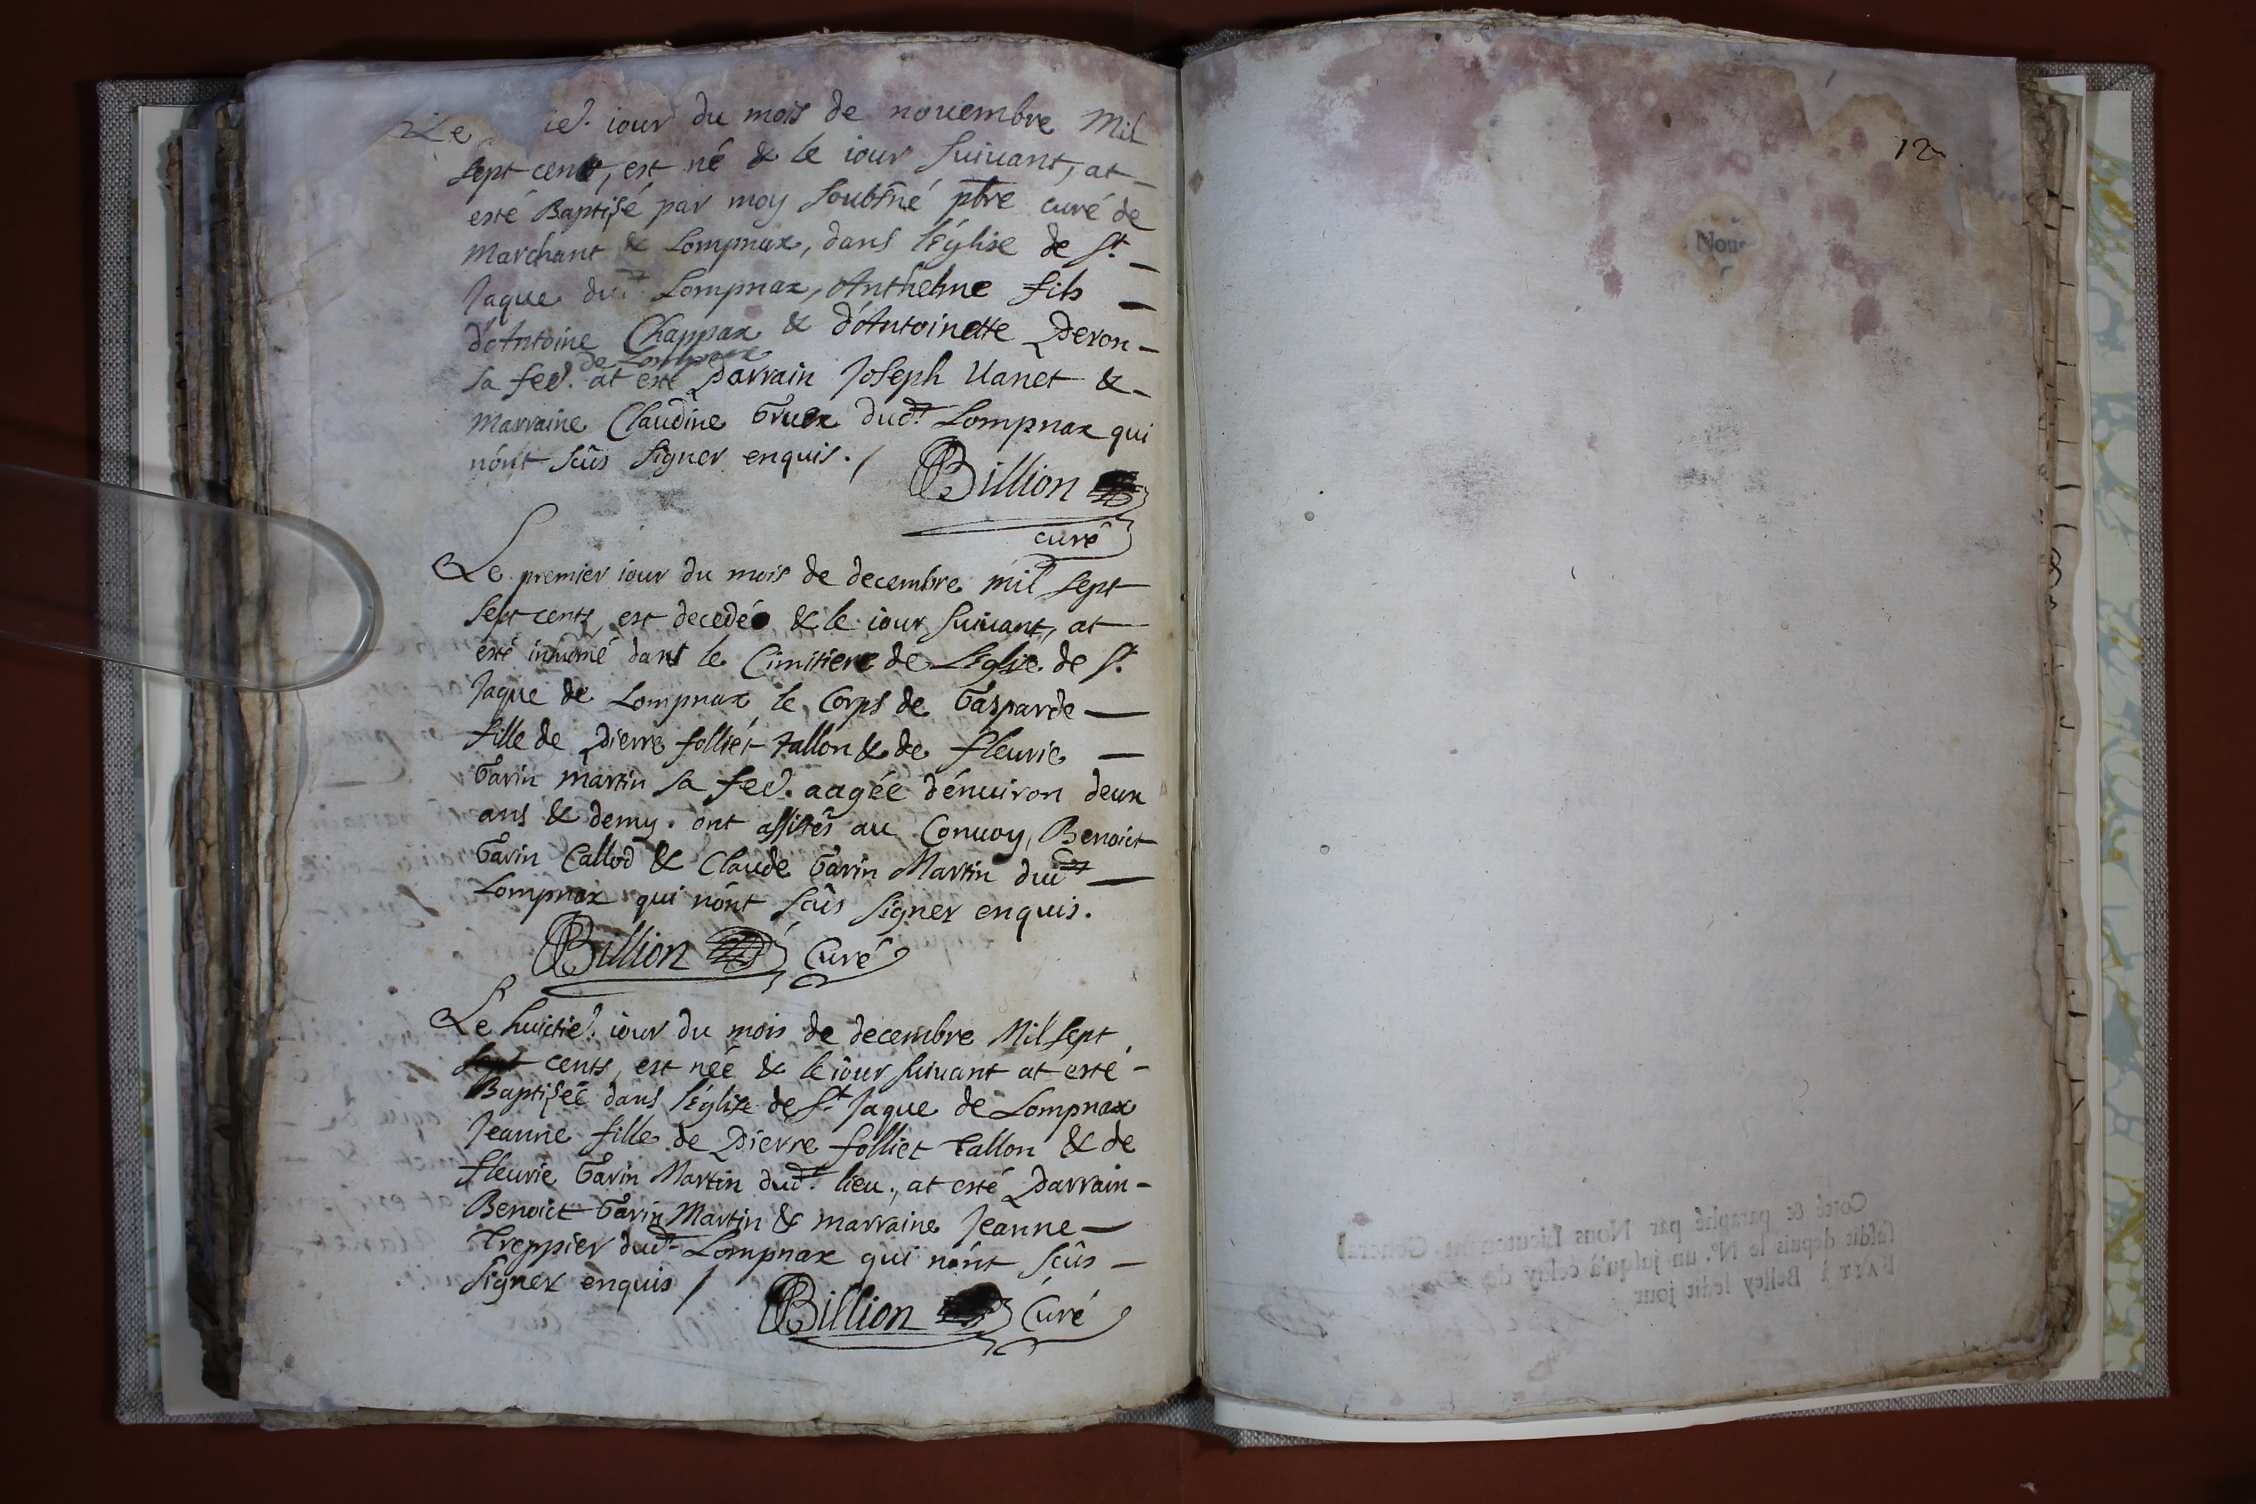 Le ie. iour du mois de nouembre Mil
sept cents, est né & le iour suiuant, at
esté Baptisé par moy soubsné ptre curé de
Marchant & Lompnax, dans l'église de St.
Jaque dudt. Lompnax, Anthelme fils
d'Antoine Chappax & d'Antoinette Peron
de Lompnax
sa fee. at esté Parrain Joseph Uanet &
Marraine Claudine Gruex dudt. Lompnax qui
n'ont scûs signer enquis.
Billion
curé
Le premier iour du mois de decembre mil sept
sept cents, est decedée & le iour suiuant, at
esté inhumé dans le Cimitiere de L'eglise de St.
Jaque de Lompnax le Corps de Gasparde
fille de Pierre folliet tallon & de fleurie
Garin martin sa fee. aagée d'énuiron deux
ans & demy. ont assistés au Conuoy, Benoict
Garin Callod & Claude Garin Martin dudt
Lompnax qui n'ont scûs signer enquis.
Billion Curé
Le huictie. iour du mois de decembre Mil sept
sept cents, est née & le iour suiuant at esté
Baptisée dans l'église de St. Jaque de Lompnax
Jeanne fille de Pierre folliet tallon & de
fleurie Garin Martin dudt. lieu, at esté Parrain
Benoict Garin Martin & marraine Jeanne
Treppier dudt. Lompnax qui n'ont scûs
signer enquis
Billion Curé
12
Nous
Coté & paraphé par Nous Lieutenant General
susdit depuis le N°. un jusqu'à celuy de
FAIT à Belley ledit jour